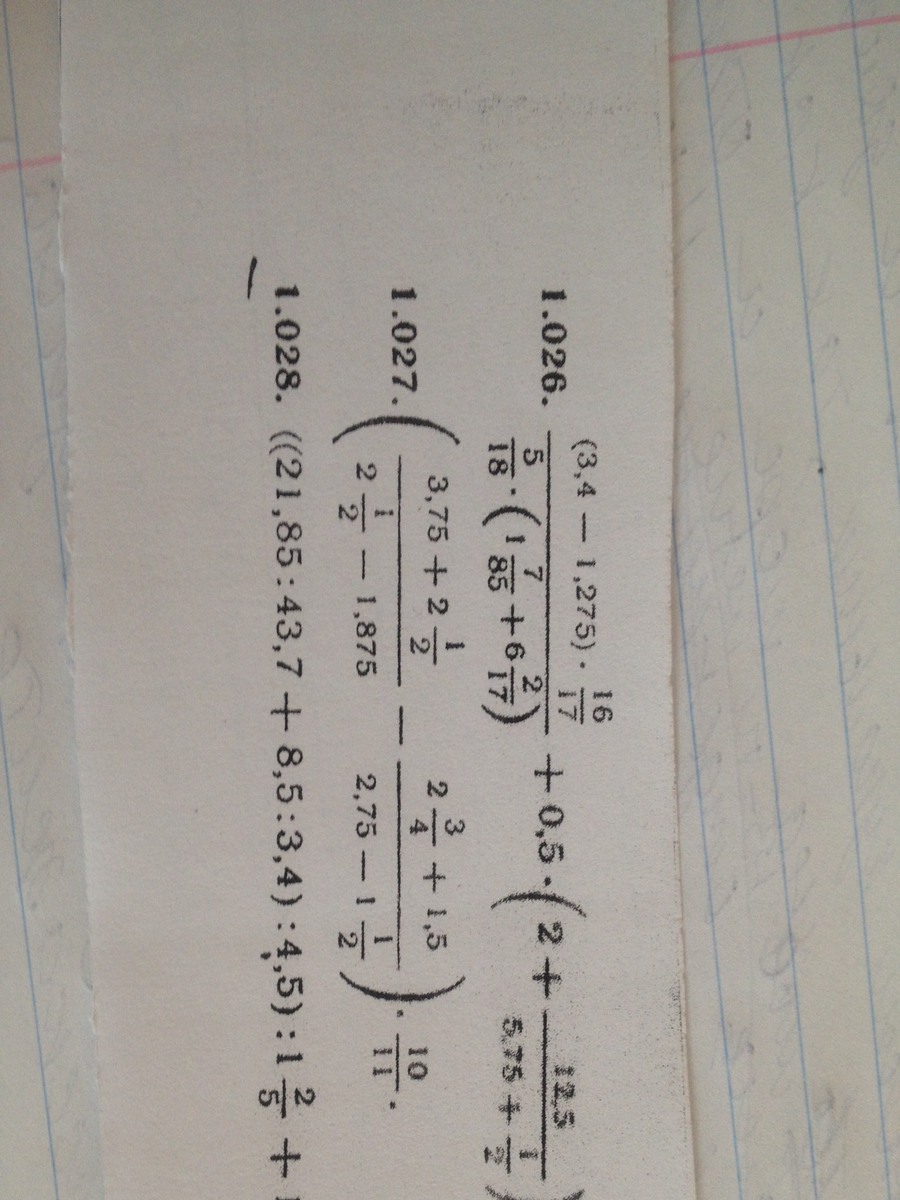 1.026. \frac{(3,4 − 1,275) · \frac{16}{17}}{\frac{5}{18} · (1\frac{7}{85} + 6\frac{2}{17})} + 0,5 · (2 + \frac{12,5}{5,75 + \frac{1}{2}})
1.027. (\frac{3,75 + 2\frac{1}{2}}{2\frac{1}{2} − 1,875} − \frac{2\frac{3}{4} + 1,5}{2,75 − 1\frac{1}{2}}) · \frac{10}{11}.
1.028. ((21,85 : 43,7 + 8,5 : 3,4) : 4,5) : 1\frac{2}{5} +